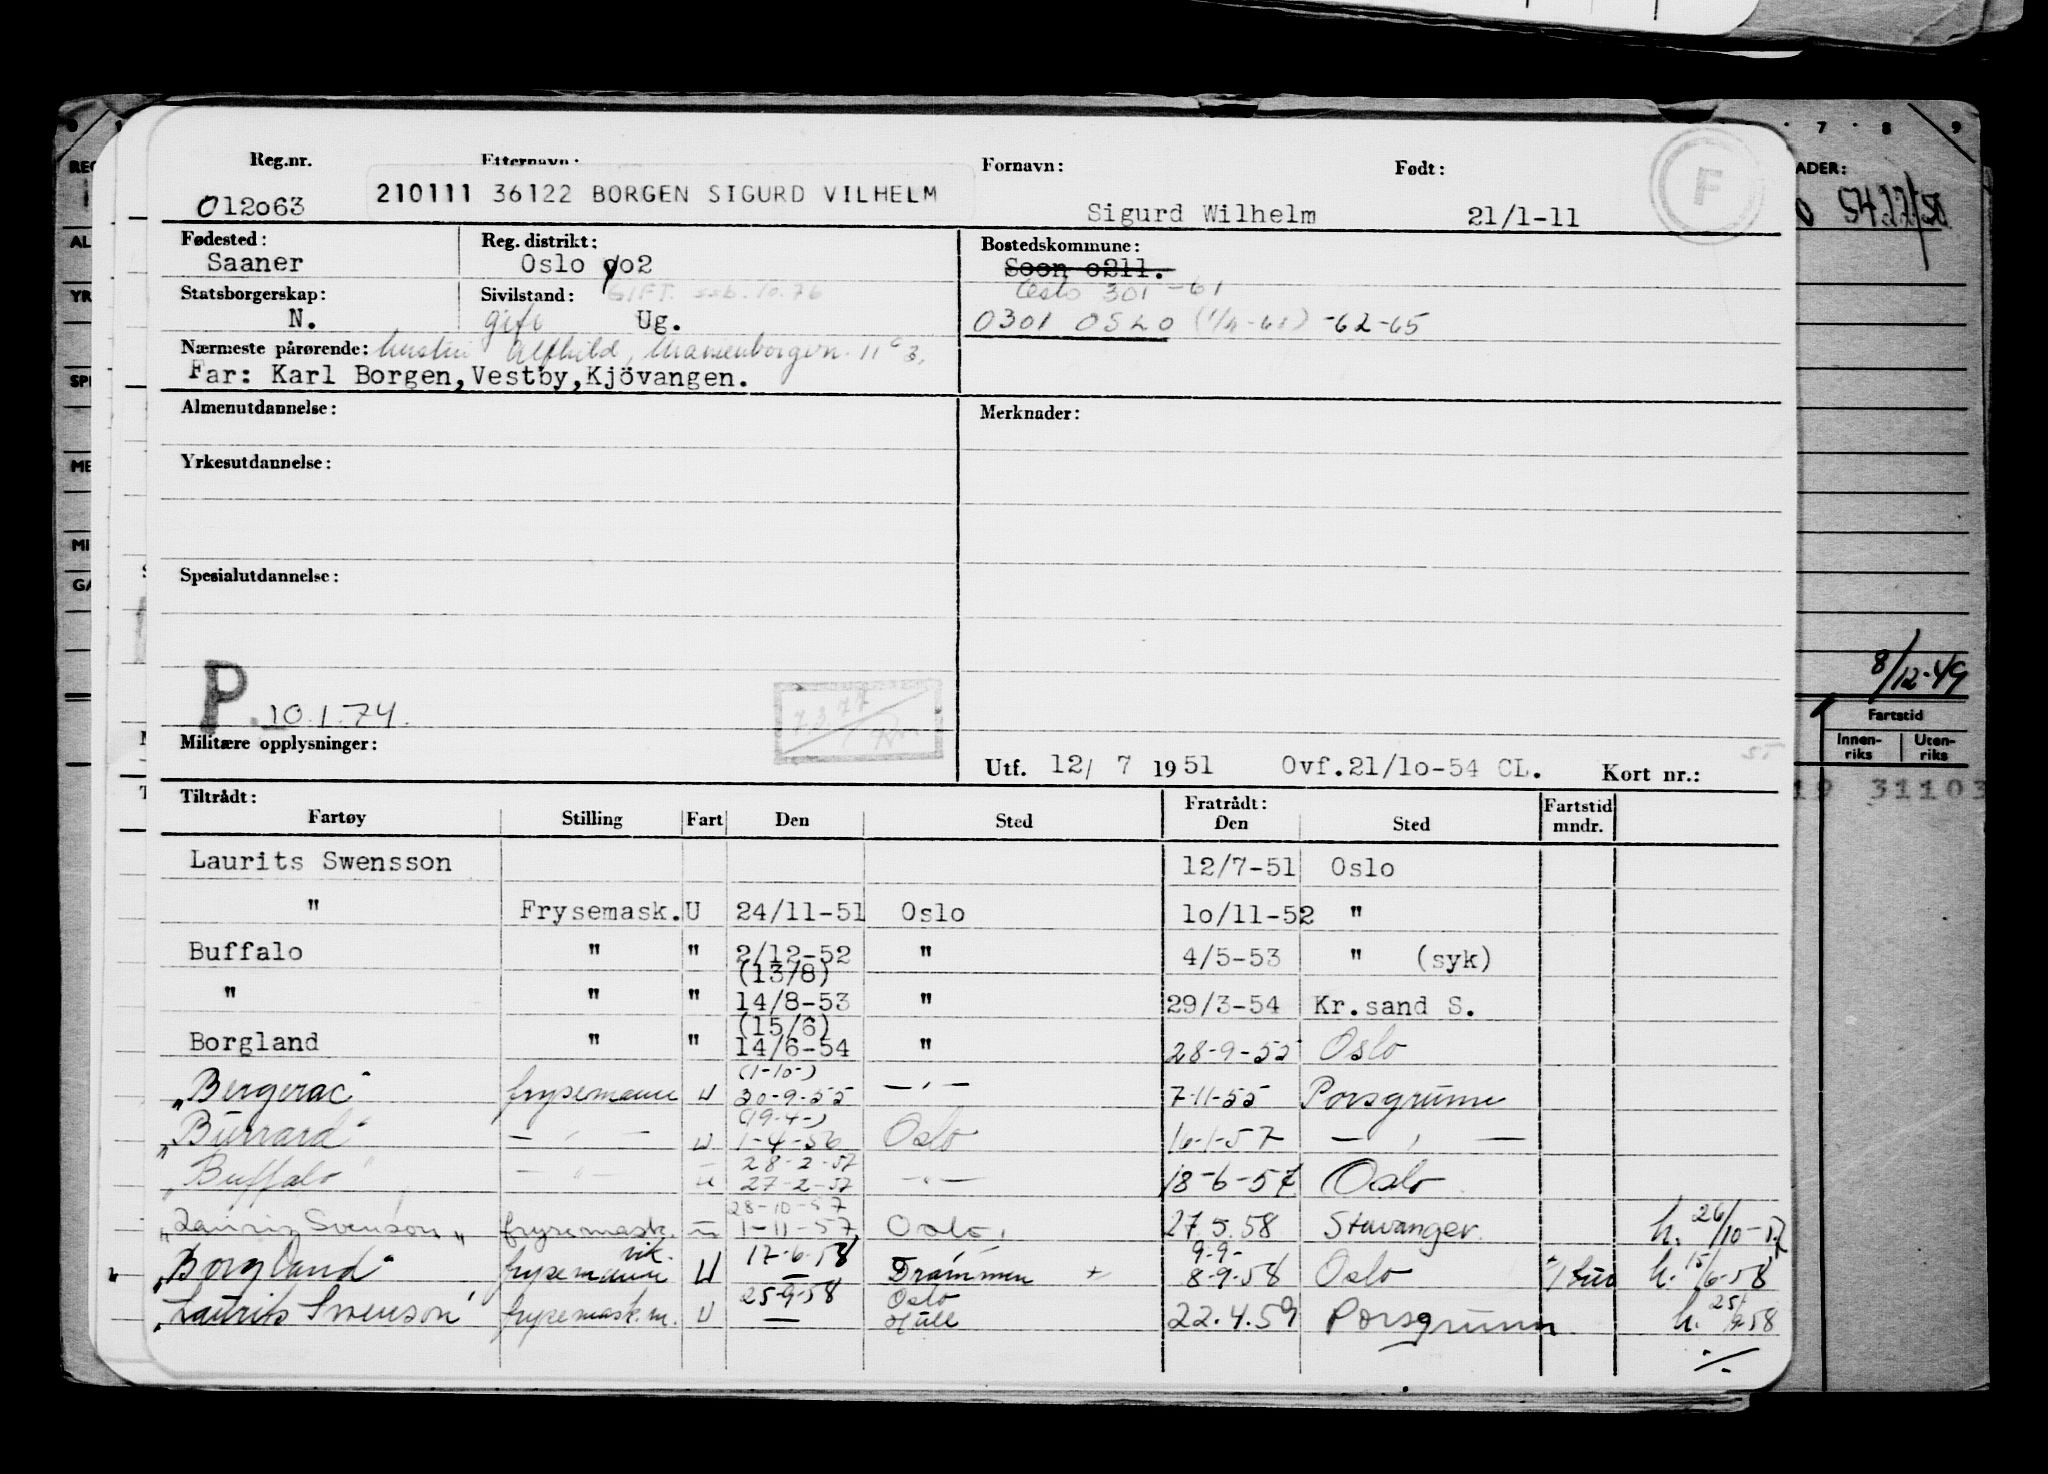 Reg.nr. Etternavn: Fornavn: Født:
012o63 210111 36122 BORGEN SIGURD VILHELM Sigurd Wilhelm 21/1-11 F
Fødested: Reg. distrikt: Bostedskommune:
Saaner Oslo oo2 Soon o211.
Oslo 301 -61
Statsborgerskap: Sivilstand: GIFT. ssb. 10.76
N. gift Ug. 0301 OSLO (1/4-61) -62-65
Nærmeste pårørende: hustru Alfhild,
Far: Karl Borgen, Vestby, Kjövangen.
Almenutdannelse: Merknader:
Yrkesutdannelse:
Spesialutdannelse:
P. 10.1.74.
Militære opplysninger:
Utf. 12/ 7 1951 Ovf.21/1o-54 CL. Kort nr.:
Tiltrådt: Fratrådt: Fartstid
Fartøy Stilling Fart Den Sted Den Sted mndr.
Laurits Swensson 12/7-51 Oslo
" Frysemask. U 24/11-51 Oslo 1o/11-52 "
Buffalo " " 2/12-52 " 4/5-53 " (syk)
(13/8)
" " " 14/8-53 " 29/3-54 Kr.sand S.
(15/6)
Borgland " " 14/6-54 " 28-9-55 Oslo
(1-10-)
"Bergerac" frysemann U 30-9-55 —"— 7-11-55 Porsgrunn
(19-4-)
"Burrard" —"— U 1-4-56 Oslo 16-1-57 —"—
28-2-57
"Buffalo" —"— U 27-2-57 —"— 18-6-57 Oslo
28-10-57
"Laurits Svenson" frysemask. U 1-11-57 Oslo. 27.5.58 Stavanger. h. 26/10-57
vik. 9-9-
"Borgland" frysemann U 17-6-58 Drammen 8-9-58 Oslo h. 15/6-58
25-9-58 Oslo
"Laurits Swenson" frysemask.m. U — 22.4.59 Porsgrunn h. 25/9-58
./.
7 8 9
8/12-49
Fartstid
Innen-riks Uten-riks
31103